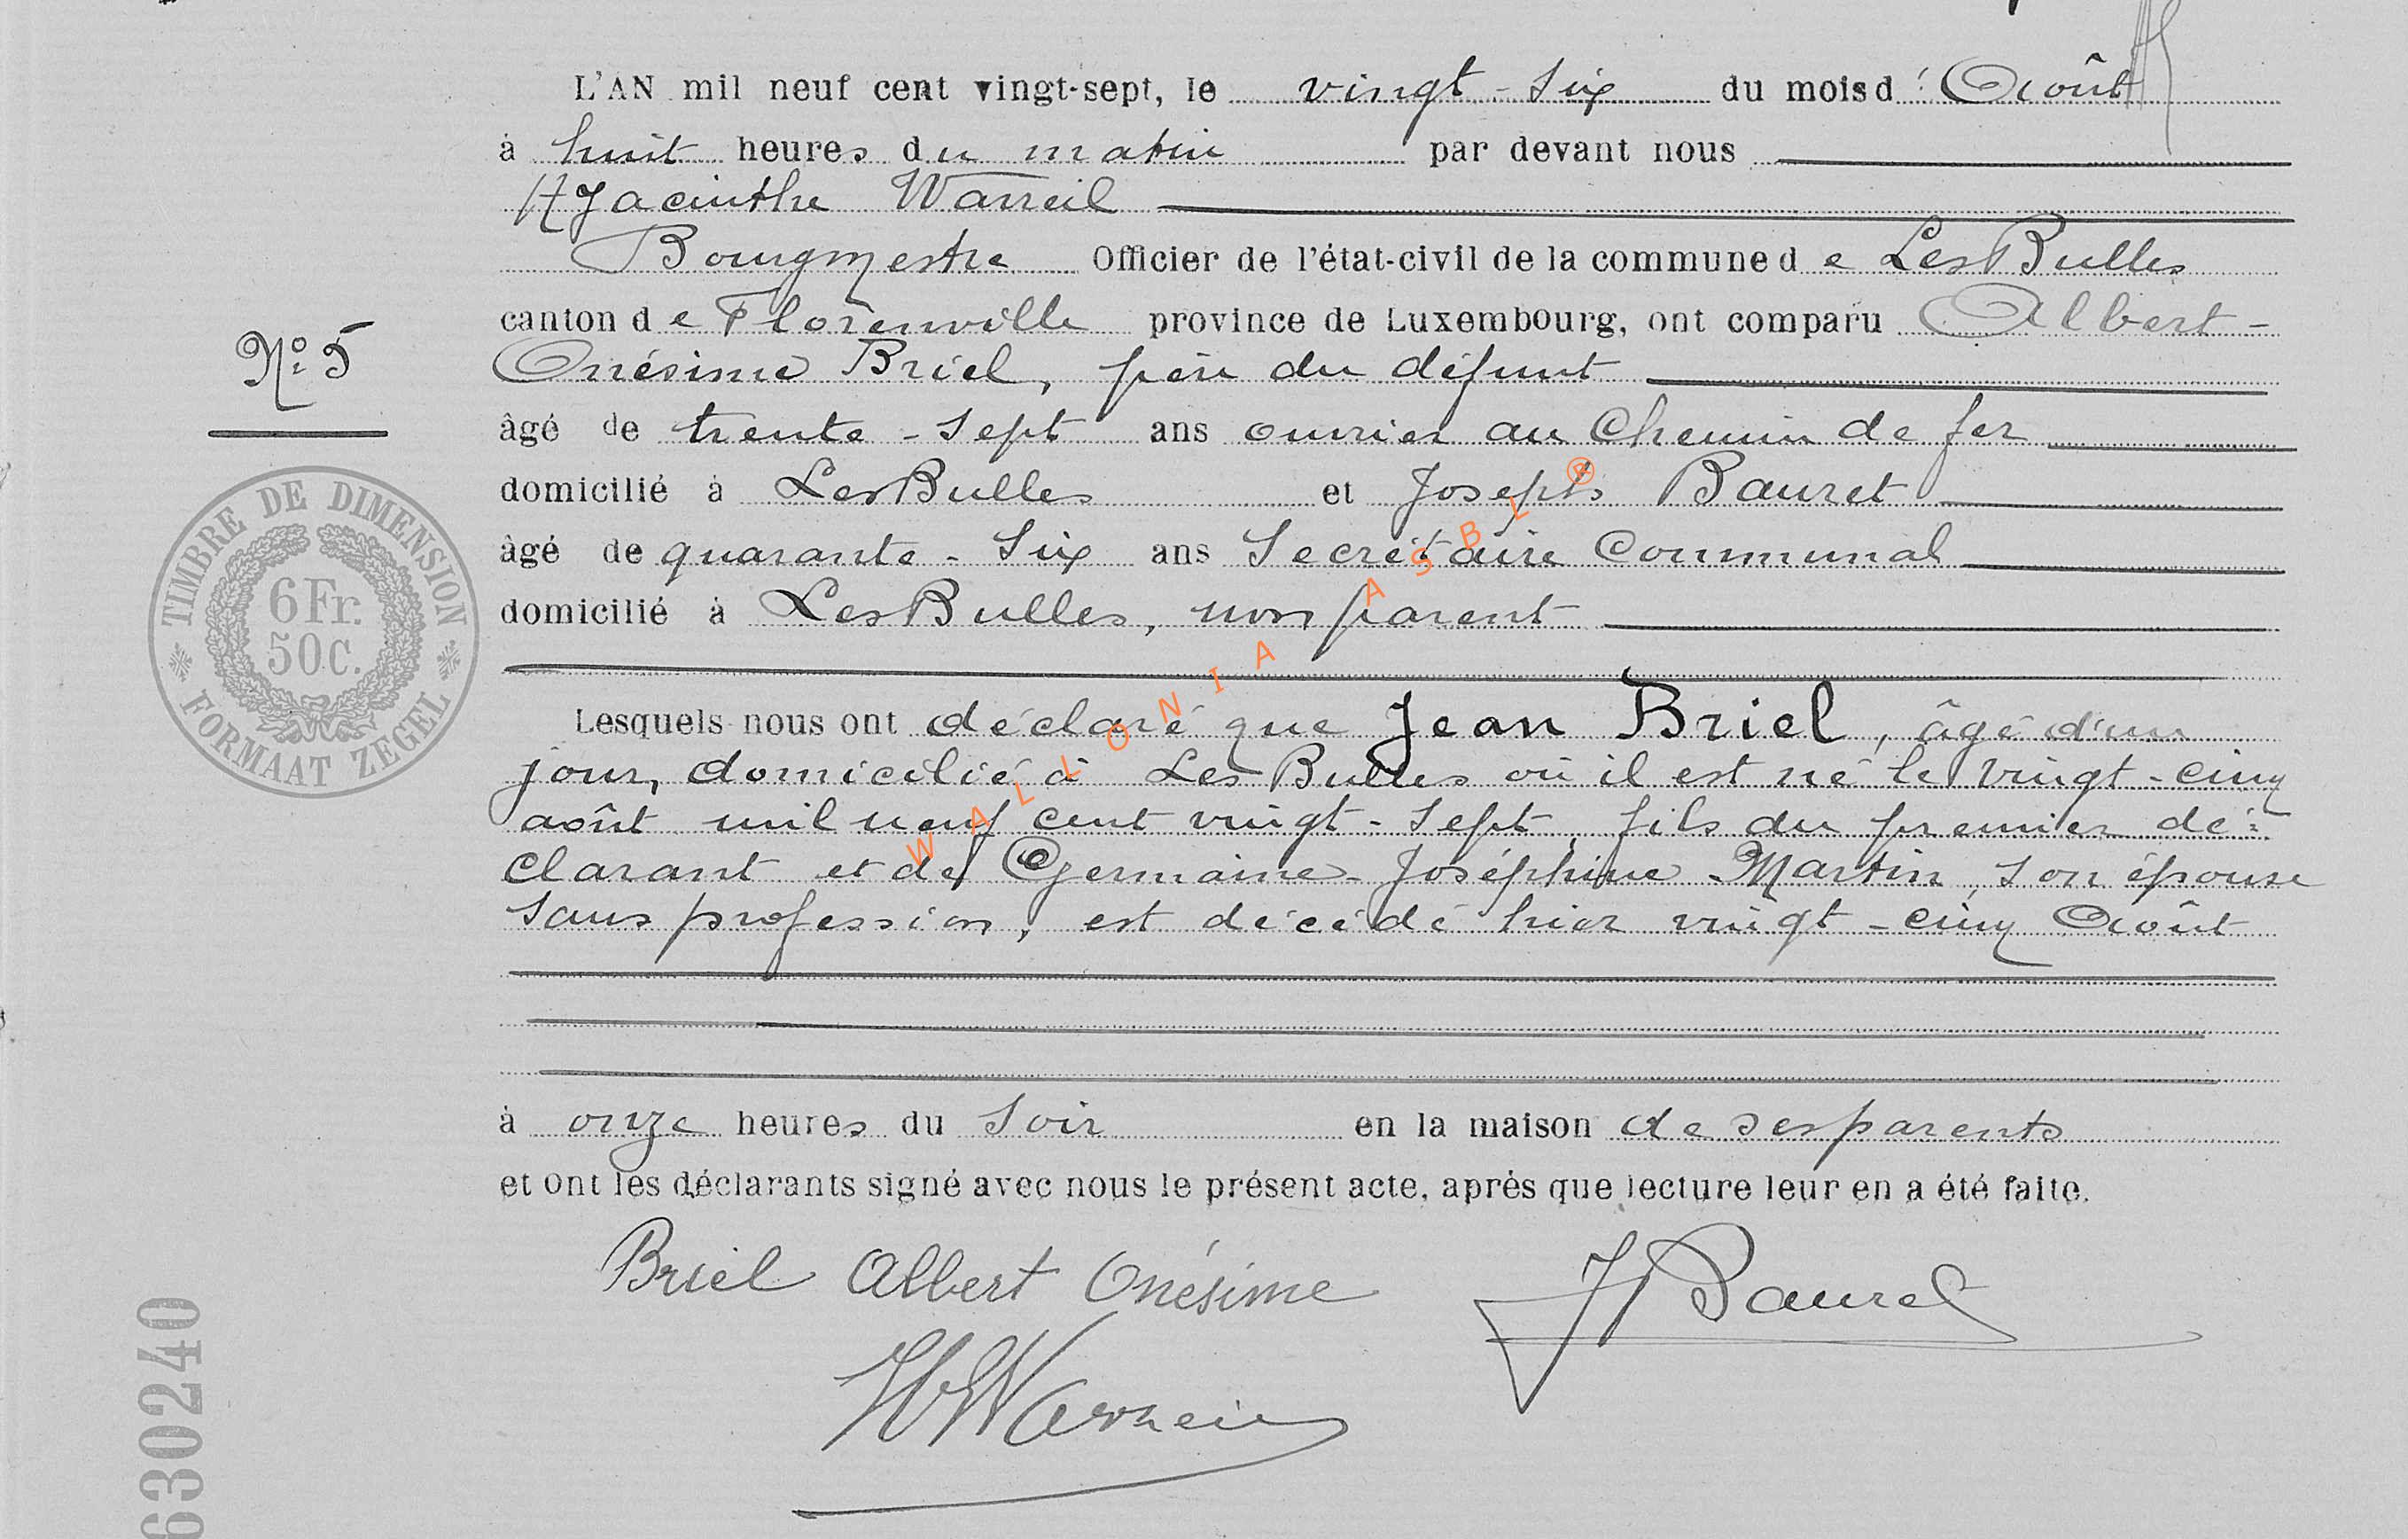 L'AN mil neuf cent vingt-sept, le vingt-six du mois d'Août
à huit heures du matin par devant nous
Hyacinthe Warzeil
Bourgmestre Officier de l'état-civil de la commune de Les Bulles
canton de Florenville province de Luxembourg, ont comparu Albert-
N° 5
Onésime Briel, père du défunt
âgé de trente-sept ans ouvrier au Chemin de fer
domicilié à Les Bulles et Joseph Bauret
âgé de quarante-six ans Secrétaire Communal
domicilié à Les Bulles, non parent
TIMBRE DE DIMENSION
6Fr.
50C.
FORMAAT ZEGEL
Lesquels nous ont déclaré que Jean Briel, âgé d'un
jour, domicilié à Les Bulles où il est né le vingt-cinq
août mil neuf cent vingt-sept, fils du premier dé=
clarant et de Germaine-Joséphine Martin, son épouse
sans profession, est décédé hier vingt-cinq Août
à onze heures du soir en la maison de ses parents
et ont les déclarants signé avec nous le présent acte, après que lecture leur en a été faite.
Briel Albert Onésime
J Bauret
630240
WALLONIA ASBL ®